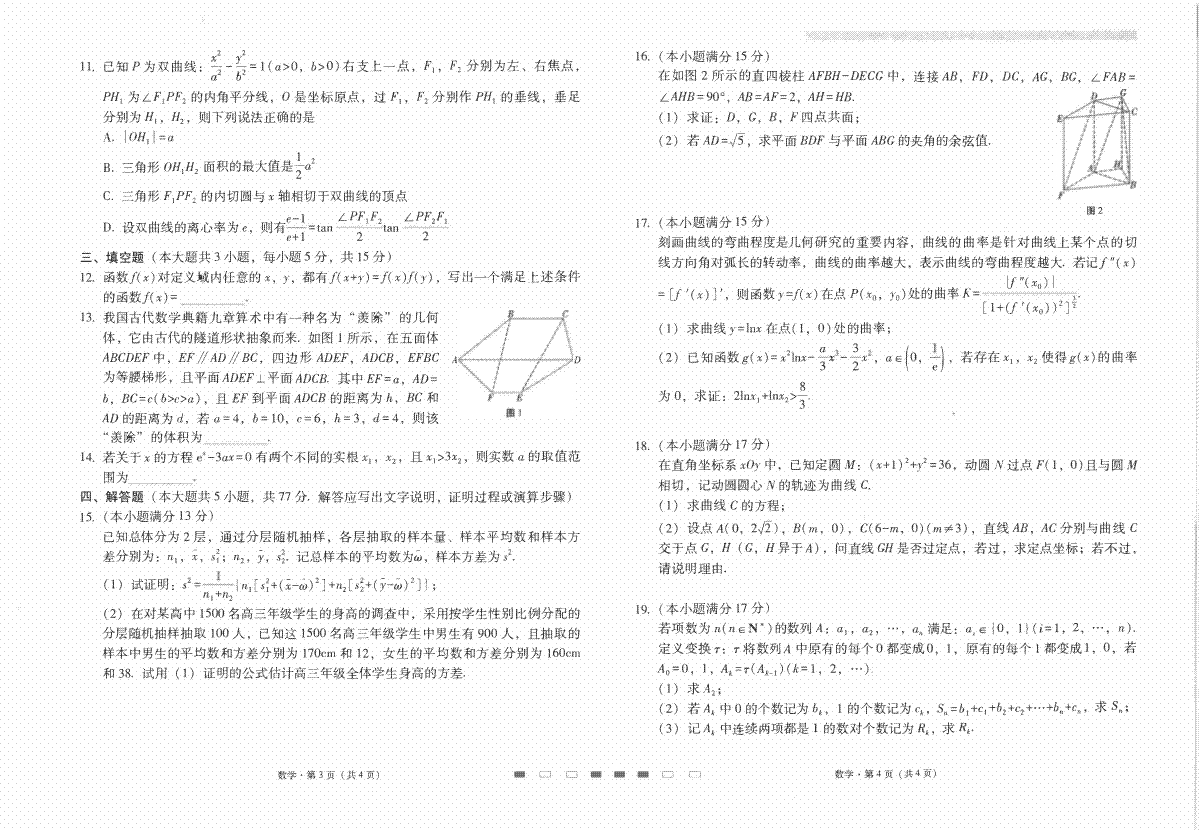 11. 已知 P 为双曲线：x²/a²-y²/b²=1(a>0，b>0)右支上一点，F₁，F₂ 分别为左、右焦点，
PH₁ 为∠F₁PF₂ 的内角平分线，O 是坐标原点，过 F₁，F₂ 分别作 PH₁ 的垂线，垂足
分别为 H₁，H₂，则下列说法正确的是
A. |OH₁|=a
B. 三角形 OH₁H₂ 面积的最大值是1/2a²
C. 三角形 F₁PF₂ 的内切圆与 x 轴相切于双曲线的顶点
D. 设双曲线的离心率为 e，则有(e-1)/(e+1)=tan ∠PF₁F₂/2 tan ∠PF₂F₁/2
三、填空题（本大题共 3 小题，每小题 5 分，共 15 分）
12. 函数 f(x)对定义域内任意的 x，y，都有 f(x+y)=f(x)f(y)，写出一个满足上述条件
的函数 f(x)=________.
13. 我国古代数学典籍九章算术中有一种名为“羡除”的几何
体，它由古代的隧道形状抽象而来. 如图 1 所示，在五面体
ABCDEF 中，EF∥AD∥BC，四边形 ADEF，ADCB，EFBC
为等腰梯形，且平面 ADEF⊥平面 ADCB. 其中 EF=a，AD=
b，BC=c(b>c>a)，且 EF 到平面 ADCB 的距离为 h，BC 和
AD 的距离为 d，若 a=4，b=10，c=6，h=3，d=4，则该
“羡除”的体积为________.
B
C
A
D
F
E
图 1
14. 若关于 x 的方程 eˣ-3ax=0 有两个不同的实根 x₁，x₂，且 x₁>3x₂，则实数 a 的取值范
围为________.
四、解答题（本大题共 5 小题，共 77 分. 解答应写出文字说明，证明过程或演算步骤）
15.（本小题满分 13 分）
已知总体分为 2 层，通过分层随机抽样，各层抽取的样本量、样本平均数和样本方
差分别为：n₁，x̄，s₁²；n₂，ȳ，s₂². 记总样本的平均数为ω̄，样本方差为 s².
（1）试证明：s²=1/(n₁+n₂){n₁[s₁²+(x̄-ω̄)²]+n₂[s₂²+(ȳ-ω̄)²]}；
（2）在对某高中 1500 名高三年级学生的身高的调查中，采用按学生性别比例分配的
分层随机抽样抽取 100 人，已知这 1500 名高三年级学生中男生有 900 人，且抽取的
样本中男生的平均数和方差分别为 170cm 和 12，女生的平均数和方差分别为 160cm
和 38. 试用（1）证明的公式估计高三年级全体学生身高的方差.
数学·第 3 页（共 4 页）
16.（本小题满分 15 分）
在如图 2 所示的直四棱柱 AFBH-DECG 中，连接 AB，FD，DC，AG，BG，∠FAB=
∠AHB=90°，AB=AF=2，AH=HB.
（1）求证：D，G，B，F 四点共面；
（2）若 AD=√5，求平面 BDF 与平面 ABG 的夹角的余弦值.
D
G
E
C
A
H
F
B
图 2
17.（本小题满分 15 分）
刻画曲线的弯曲程度是几何研究的重要内容，曲线的曲率是针对曲线上某个点的切
线方向角对弧长的转动率，曲线的曲率越大，表示曲线的弯曲程度越大. 若记 f″(x)
=[f′(x)]′，则函数 y=f(x)在点 P(x₀，y₀)处的曲率 K=|f″(x₀)|/[1+(f′(x₀))²]^(3/2).
（1）求曲线 y=lnx 在点(1，0)处的曲率；
（2）已知函数 g(x)=x²lnx-a/3x³-3/2x²，a∈(0，1/e)，若存在 x₁，x₂ 使得 g(x)的曲率
为 0，求证：2lnx₁+lnx₂>8/3.
18.（本小题满分 17 分）
在直角坐标系 xOy 中，已知定圆 M：(x+1)²+y²=36，动圆 N 过点 F(1，0)且与圆 M
相切，记动圆圆心 N 的轨迹为曲线 C.
（1）求曲线 C 的方程；
（2）设点 A(0，2√2)，B(m，0)，C(6-m，0)(m≠3)，直线 AB，AC 分别与曲线 C
交于点 G，H（G，H 异于 A），问直线 GH 是否过定点，若过，求定点坐标；若不过，
请说明理由.
19.（本小题满分 17 分）
若项数为 n(n∈N*)的数列 A：a₁，a₂，…，aₙ 满足：aᵢ∈{0，1}(i=1，2，…，n).
定义变换 τ：τ 将数列 A 中原有的每个 0 都变成 0，1，原有的每个 1 都变成 1，0，若
A₀=0，1，Aₖ=τ(Aₖ₋₁)(k=1，2，…).
（1）求 A₂；
（2）若 Aₖ 中 0 的个数记为 bₖ，1 的个数记为 cₖ，Sₙ=b₁+c₁+b₂+c₂+…+bₙ+cₙ，求 Sₙ；
（3）记 Aₖ 中连续两项都是 1 的数对个数记为 Rₖ，求 Rₖ.
数学·第 4 页（共 4 页）